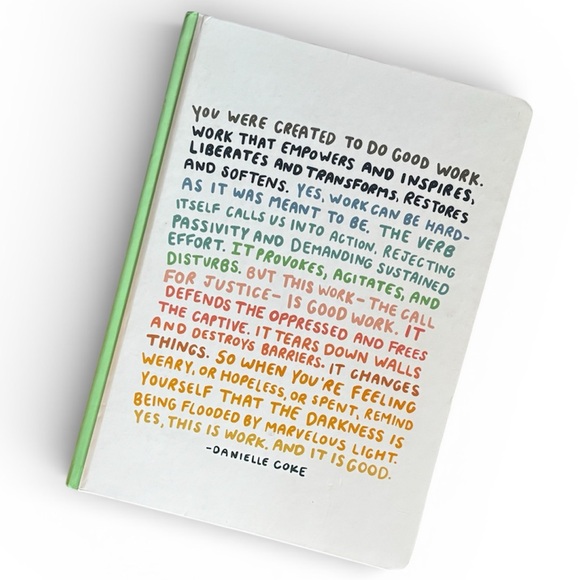 YOU WERE CREATED TO DO GOOD WORK.
WORK THAT EMPOWERS AND INSPIRES,
LIBERATES AND TRANSFORMS, RESTORES
AND SOFTENS. YES, WORK CAN BE HARD-
AS IT WAS MEANT TO BE. THE VERB
ITSELF CALLS US INTO ACTION. REJECTING
PASSIVITY AND DEMANDING SUSTAINED
EFFORT. IT PROVOKES, AGITATES, AND
DISTURBS. BUT THIS WORK- THE CALL
FOR JUSTICE- IS GOOD WORK. IT
DEFENDS THE OPPRESSED AND FREES
THE CAPTIVE. IT TEARS DOWN WALLS
AND DESTROYS BARRIERS. IT CHANGES
THINGS. SO WHEN YOU'RE FEELING
WEARY, OR HOPELESS, OR SPENT, REMIND
YOURSELF THAT THE DARKNESS IS
BEING FLOODED BY MARVELOUS LIGHT.
YES, THIS IS WORK. AND IT IS GOOD.
-DANIELLE COKE